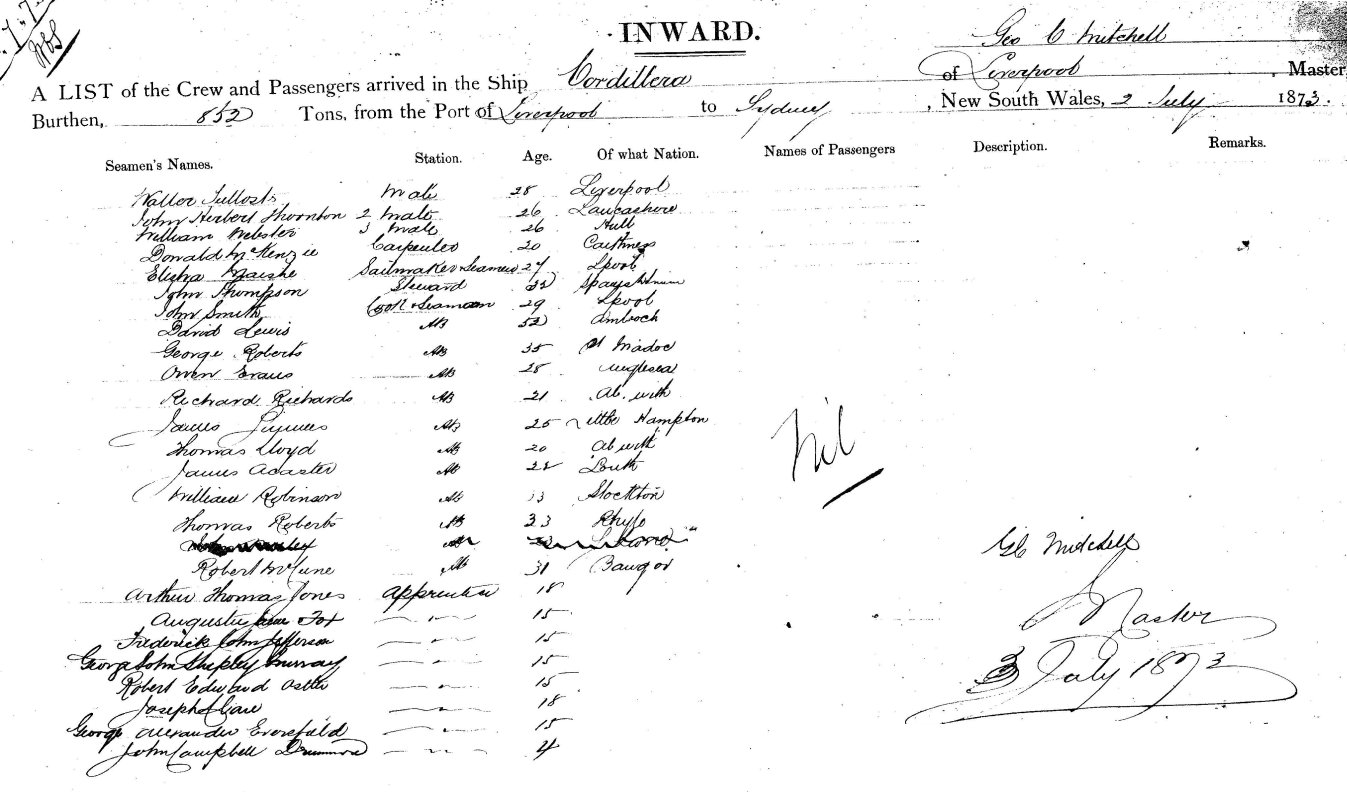 INWARD.
Geo C Mitchell
A LIST of the Crew and Passengers arrived in the Ship Cordillera of Liverpool, Master
Burthen, 852 Tons, from the Port of Liverpool to Sydney, New South Wales, 2 July 1873.
Seamen's Names. Station. Age. Of what Nation. Names of Passengers Description. Remarks.
Walter Mate 28 Liverpool
John Herbert Thornton 2 Mate 26 Lancashire
William Webster 3 Mate 26 Hull
Donald McKenzie Carpenter 20 Caithness
Elisha Sailmaker & Seaman 27 Lpool
John Thompson Steward 32
John Smith Cook & Seaman 29 Lpool
David Lewis AB 52 Amloch
George Roberts AB 35 Pt Madoc
Owen Evans AB 28 Anglesea
Richard Richards AB 21 Ab. with
James AB 25 Little Hampton
Thomas Lloyd AB 20 Ab with
James Acaster AB 22 Louth
William Robinson AB 33 Stockton
Thomas Roberts AB 33 Rhyl
AB
Robert McCune AB 31 Bangor
Arthur Thomas Jones Apprentice 18
Fox — " — 15
Frederick John Jefferson — " — 15
George John Shepley Murray — " — 15
Robert Edward — " — 15
Joseph — " — 18
George Alexander Eversfield — " — 15
John Campbell — " —
Nil
GC Mitchell
Master
3 July 1873